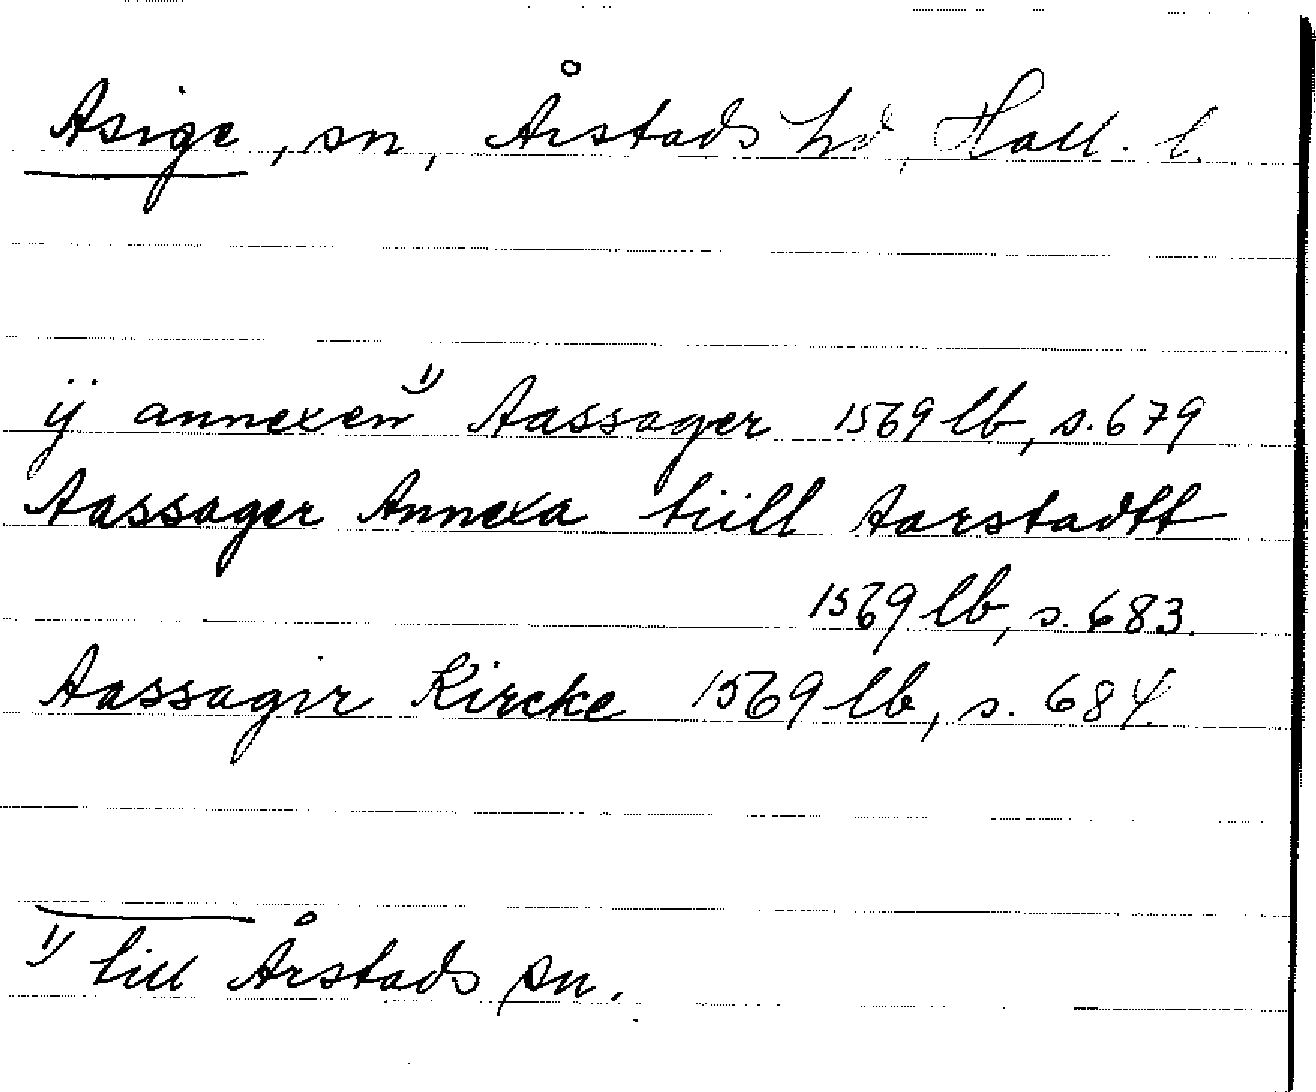 Asige, sn, Årstads hd, Hall. l.
ÿ annexen 1) Aassager 1569 lb, s. 679
Aassager Annexa tiill Aarstadtt
1569 lb, s. 683.
Aassagir Kircke 1569 lb, s. 684
1) till Årstads sn.